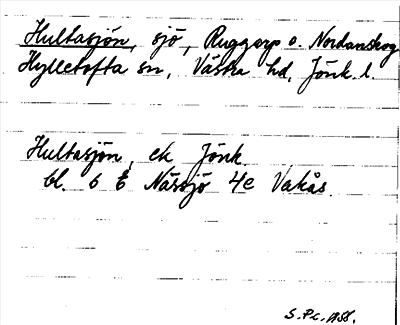 Hultasjön, sjö, Ruggarp o. Nordanskog
Hylletofta sn, Västra hd, Jönk. l.
Hultasjön, ek Jönk
bl. 6 E Nässjö 4e Vakås.
S.P.C. 1958.